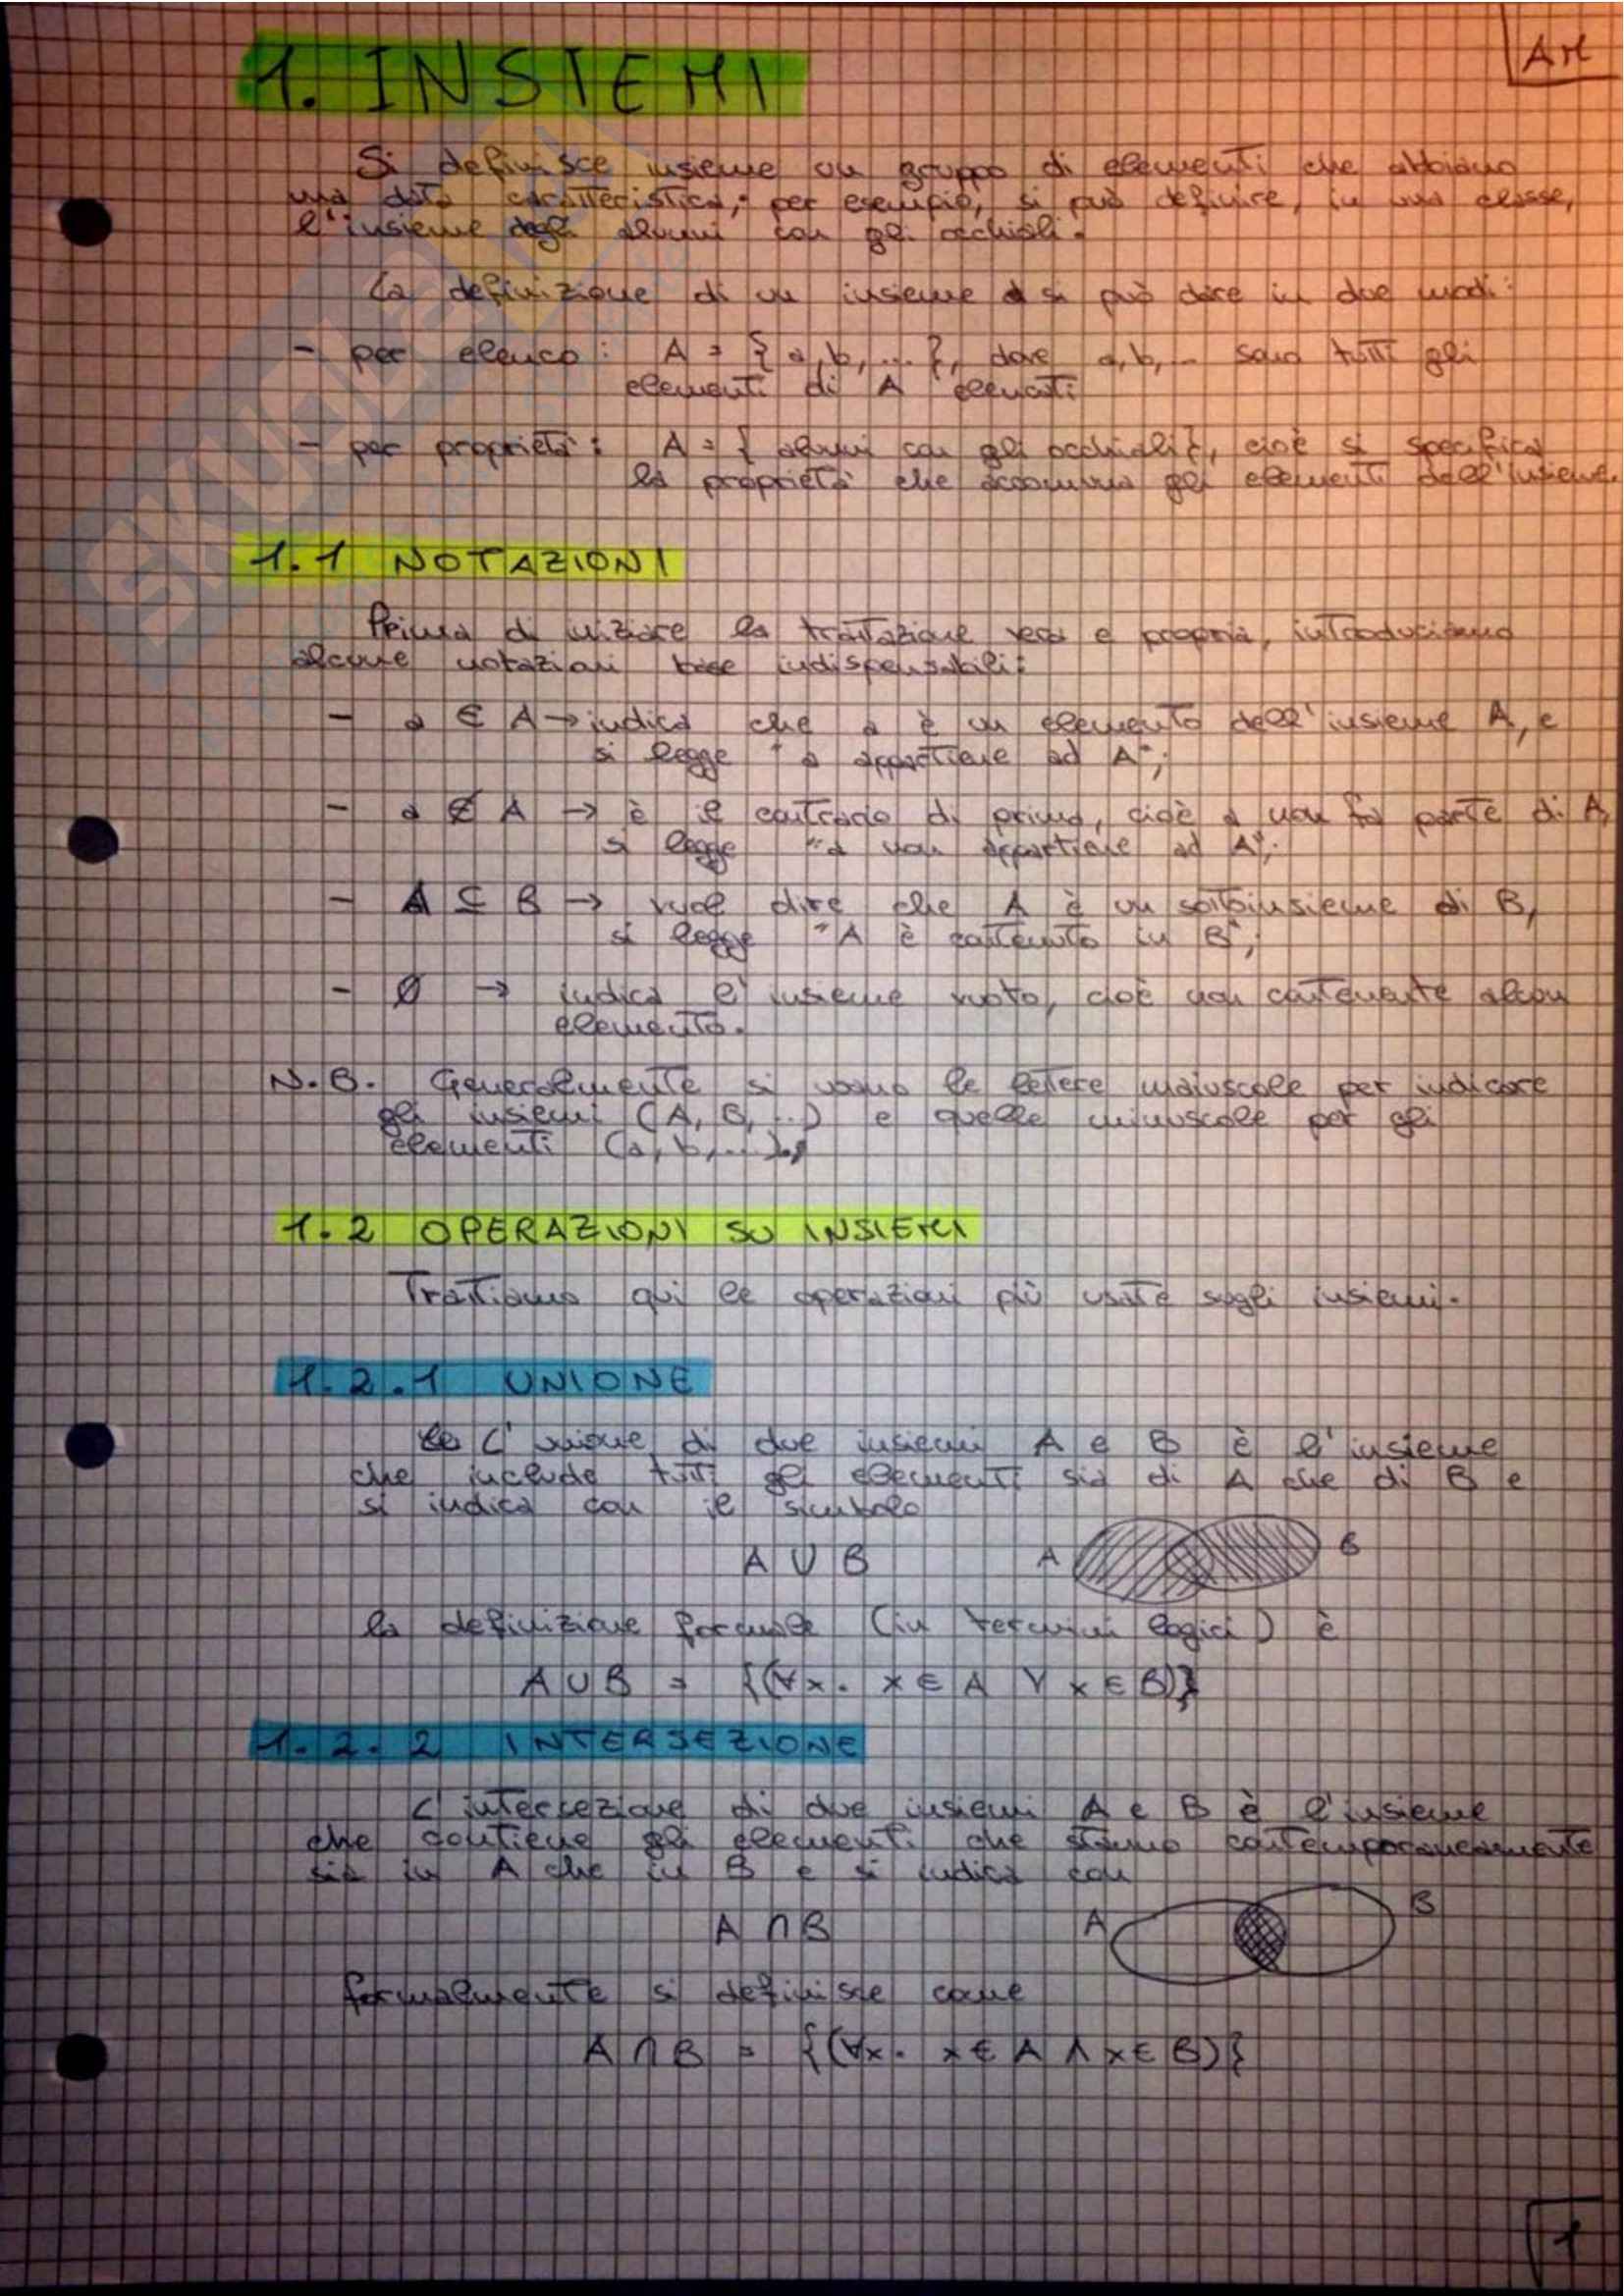 AM
1. INSIEMI
Si definisce insieme un gruppo di elementi che abbiano
una data caratteristica; per esempio, si può definire, in una classe,
l'insieme degli alunni con gli occhiali.
La definizione di un insieme si può dare in due modi:
- per elenco: A = {a, b, ...}, dove a, b, ... sono tutti gli
elementi di A elencati
- per proprietà: A = {alunni con gli occhiali}, cioè si specifica
la proprietà che accomuna gli elementi dell'insieme.
1.1 NOTAZIONI
Prima di iniziare la trattazione vera e propria, introduciamo
alcune notazioni base indispensabili:
- a ∈ A → indica che a è un elemento dell'insieme A, e
si legge "a appartiene ad A";
- a ∉ A → è il contrario di prima, cioè a non fa parte di A,
si legge "a non appartiene ad A";
- A ⊆ B → vuol dire che A è un sottoinsieme di B,
si legge "A è contenuto in B";
- Ø → indica l'insieme vuoto, cioè non contenente alcun
elemento.
N.B. Generalmente si usano le lettere maiuscole per indicare
gli insiemi (A, B, ...) e quelle minuscole per gli
elementi (a, b, ...).
1.2 OPERAZIONI SU INSIEMI
Trattiamo qui le operazioni più usate sugli insiemi.
1.2.1 UNIONE
L'unione di due insiemi A e B è l'insieme
che include tutti gli elementi sia di A che di B e
si indica con il simbolo
A ∪ B A B
la definizione formale (in termini logici) è
A ∪ B = {(∀x. x ∈ A ∨ x ∈ B)}
1.2.2 INTERSEZIONE
L'intersezione di due insiemi A e B è l'insieme
che contiene gli elementi che stanno contemporaneamente
sia in A che in B e si indica con
A ∩ B A B
formalmente si definisce come
A ∩ B = {(∀x. x ∈ A ∧ x ∈ B)}
1